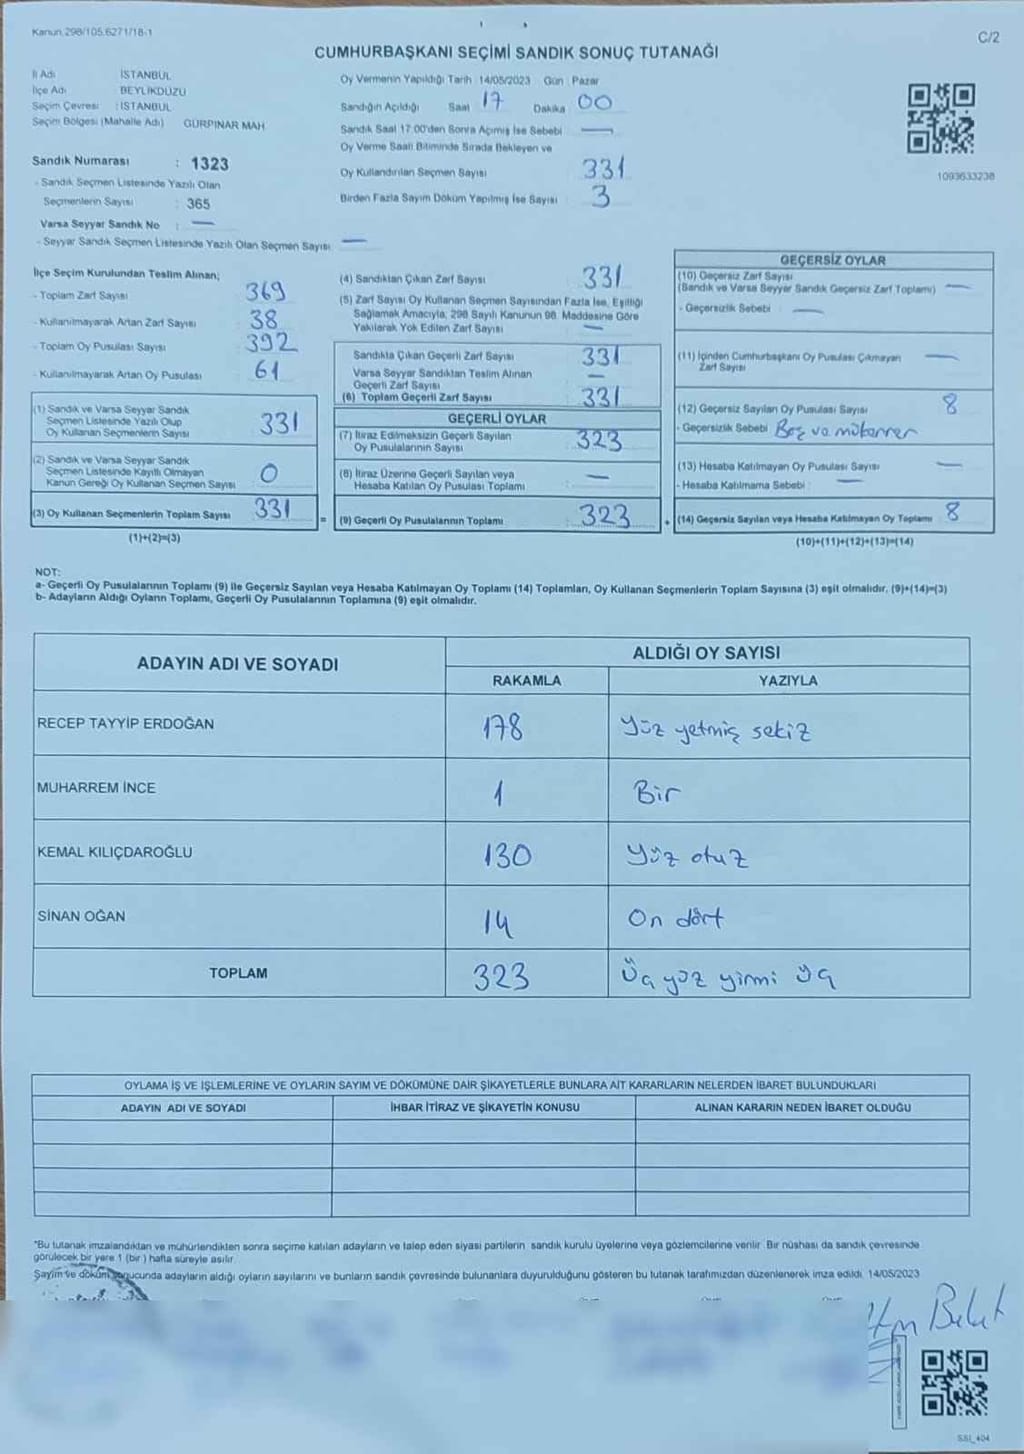 Kanun 298/105.6271/18-1
C/2
CUMHURBAŞKANI SEÇİMİ SANDIK SONUÇ TUTANAĞI
İl Adı : İSTANBUL
İlçe Adı : BEYLİKDÜZÜ
Seçim Çevresi : İSTANBUL
Seçim Bölgesi (Mahalle Adı) GÜRPINAR MAH.
Sandık Numarası : 1323
- Sandık Seçmen Listesinde Yazılı Olan
Seçmenlerin Sayısı : 365
Varsa Seyyar Sandık No : —
- Seyyar Sandık Seçmen Listesinde Yazılı Olan Seçmen Sayısı —
Oy Vermenin Yapıldığı Tarih : 14/05/2023 Gün : Pazar
Sandığın Açıldığı Saat 17 Dakika 00
Sandık Saat 17:00'den Sonra Açılmış İse Sebebi —
Oy Verme Saati Bitiminde Sırada Bekleyen ve
Oy Kullandırılan Seçmen Sayısı 331
Birden Fazla Sayım Döküm Yapılmış İse Sayısı 3
1093633238
İlçe Seçim Kurulundan Teslim Alınan;
- Toplam Zarf Sayısı 369
- Kullanılmayarak Artan Zarf Sayısı 38
- Toplam Oy Pusulası Sayısı 392
- Kullanılmayarak Artan Oy Pusulası 61
(1) Sandık ve Varsa Seyyar Sandık
Seçmen Listesinde Yazılı Olup
Oy Kullanan Seçmenlerin Sayısı 331
(2) Sandık ve Varsa Seyyar Sandık
Seçmen Listesinde Kayıtlı Olmayan
Kanun Gereği Oy Kullanan Seçmen Sayısı 0
(3) Oy Kullanan Seçmenlerin Toplam Sayısı 331
(1)+(2)=(3)
=
(4) Sandıktan Çıkan Zarf Sayısı 331
(5) Zarf Sayısı Oy Kullanan Seçmen Sayısından Fazla İse, Eşitliği
Sağlamak Amacıyla, 298 Sayılı Kanunun 98. Maddesine Göre
Yakılarak Yok Edilen Zarf Sayısı —
Sandıkta Çıkan Geçerli Zarf Sayısı 331
Varsa Seyyar Sandıktan Teslim Alınan
Geçerli Zarf Sayısı —
(6) Toplam Geçerli Zarf Sayısı 331
GEÇERLİ OYLAR
(7) İtiraz Edilmeksizin Geçerli Sayılan
Oy Pusulalarının Sayısı 323
(8) İtiraz Üzerine Geçerli Sayılan veya
Hesaba Katılan Oy Pusulası Toplamı —
(9) Geçerli Oy Pusulalarının Toplamı : 323
+
GEÇERSİZ OYLAR
(10) Geçersiz Zarf Sayısı
(Sandık ve Varsa Seyyar Sandık Geçersiz Zarf Toplamı) —
- Geçersizlik Sebebi : —
(11) İçinden Cumhurbaşkanı Oy Pusulası Çıkmayan
Zarf Sayısı —
(12) Geçersiz Sayılan Oy Pusulası Sayısı 8
- Geçersizlik Sebebi Boş ve mükerrer
(13) Hesaba Katılmayan Oy Pusulası Sayısı —
- Hesaba Katılmama Sebebi : —
(14) Geçersiz Sayılan veya Hesaba Katılmayan Oy Toplamı 8
(10)+(11)+(12)+(13)=(14)
NOT:
a- Geçerli Oy Pusulalarının Toplamı (9) ile Geçersiz Sayılan veya Hesaba Katılmayan Oy Toplamı (14) Toplamları, Oy Kullanan Seçmenlerin Toplam Sayısına (3) eşit olmalıdır. (9)+(14)=(3)
b- Adayların Aldığı Oyların Toplamı, Geçerli Oy Pusulalarının Toplamına (9) eşit olmalıdır.
ADAYIN ADI VE SOYADI
ALDIĞI OY SAYISI
RAKAMLA YAZIYLA
RECEP TAYYİP ERDOĞAN 178 Yüz yetmiş sekiz
MUHARREM İNCE 1 Bir
KEMAL KILIÇDAROĞLU 130 Yüz otuz
SİNAN OĞAN 14 On dört
TOPLAM 323 Üç yüz yirmi üç
OYLAMA İŞ VE İŞLEMLERİNE VE OYLARIN SAYIM VE DÖKÜMÜNE DAİR ŞİKAYETLERLE BUNLARA AİT KARARLARIN NELERDEN İBARET BULUNDUKLARI
ADAYIN ADI VE SOYADI İHBAR İTİRAZ VE ŞİKAYETİN KONUSU ALINAN KARARIN NEDEN İBARET OLDUĞU
*Bu tutanak imzalandıktan ve mühürlendikten sonra seçime katılan adayların ve talep eden siyasi partilerin sandık kurulu üyelerine veya gözlemcilerine verilir. Bir nüshası da sandık çevresinde
görülecek bir yere 1 (bir) hafta süreyle asılır.
Sayım ve döküm sonucunda adayların aldığı oyların sayılarını ve bunların sandık çevresinde bulunanlara duyurulduğunu gösteren bu tutanak tarafımızdan düzenlenerek imza edildi. 14/05/2023
SSI_404